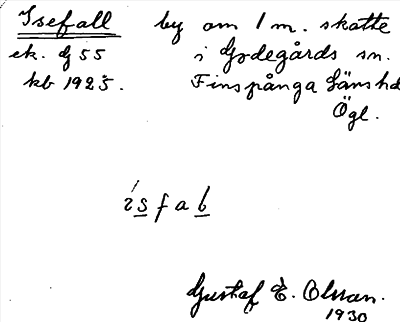 Isefall by om 1 m. skatte
ek. G 55 i Godegårds sn.
kb 1925. Finspånga länshd
Ögl.
isfab
Gustaf E. Olsson.
1930